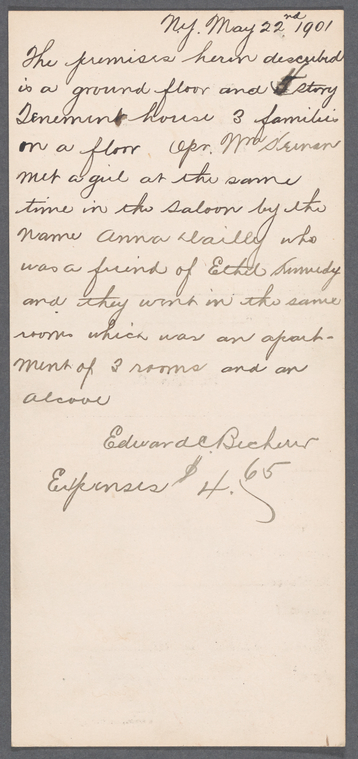 N.Y. May 22nd 1901
The premises herin described
is a ground floor and 5 story
Tenement house 3 families
on a floor Opr. Wm
met a girl at the same
time in the saloon by the
name Anna Dailly who
was a friend of Ethel Kennedy
and they went in the same
rooms which was an apart-
ment of 3 rooms and an
alcove
Edward C. Becherer
Expenses $4.65